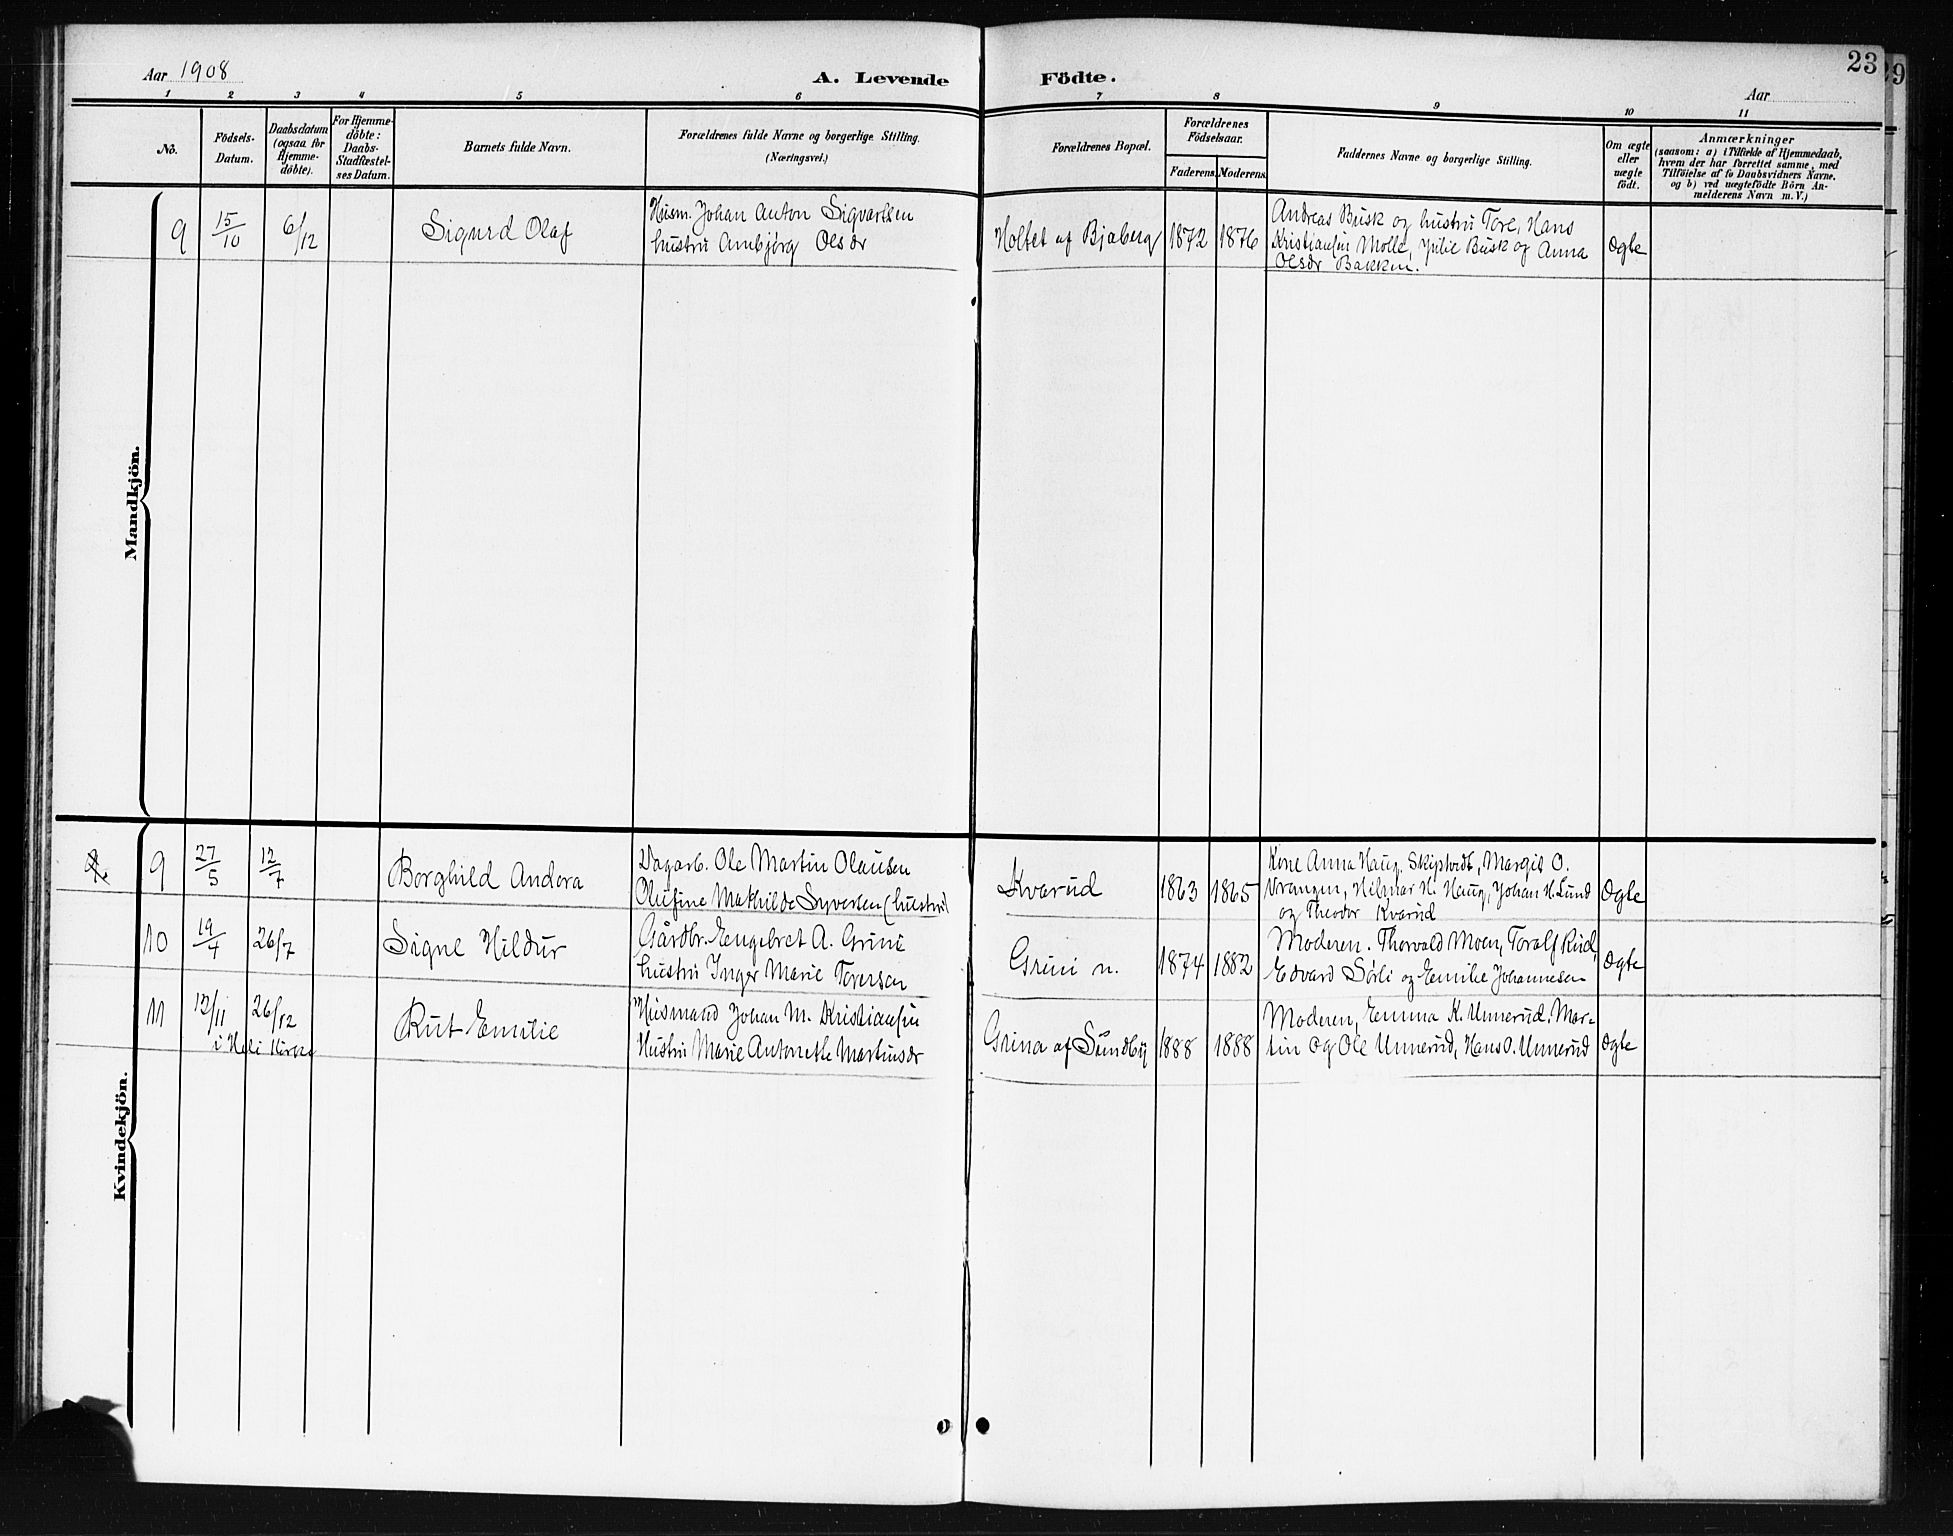 Aar 1908
A. Levende Födte.
23
29
Aar
1 2 3 4 5 6 7 8 9 10 11
No.
Födsels-
Datum.
Daabsdatum
(ogsaa for
Hjemme-
döbte).
For Hjemme-
döbte:
Daabs-
Stadfæstel-
ses Datum.
Barnets fulde Navn.
Forældrenes fulde Navne og borgerlige Stilling.
(Næringsvei.)
Forældrenes Bopæl.
Forældrenes
Födselsaar.
Faderens. Moderens.
Faddernes Navne og borgerlige Stilling.
Om ægte
eller
uægte
födt.
Anmærkninger
(saasom: a) i Tilfælde af Hjemmedaab,
hvem der har forrettet samme, med
Tilföielse af to Daabsvidners Navne,
og b) ved uægtefödte Börn An-
melderens Navn m. V.)
Mandkjön.
9
15/10
6/12
Sigurd Olaf
Husm. Johan Anton Sigvartsen
hustru Ambjørg Olsdr
Holtet af Bjaberg
1872
1876
Andreas Busk og hustru Tore, Hans
Kristiansen Molle, Julie Busk og Anna
Olsdr Bakken.
Ægte
Kvindekjön.
9
27/5
12/7
Borghild Andora
Dagarb. Ole Martin Olausen
Olufine Mathilde Syversen (hustru)
Kvarud
1863
1865
Kone Anna Haug, Skiptvedt, Margit O.
Vrangen, Hilmar H. Haug, Johan H. Lund
og Theodor Kvarud
Ægte
10
19/4
26/7
Signe Hildur
Gårdbr. Engebret A. Grini
hustru Inger Marie Toresen
Grini n.
1874
1882
Moderen. Thorvald Moen, Toralf Rud,
Edvard Sørli og Emilie Johannesen
Ægte
11
12/11
26/12
i Heli Kirke
Rut Emilie
Husmand Johan M. Kristiansen
Hustru Marie Antonette Martinsdr
Grina af Sundby
1888
1888
Moderen, Emma K. Unnerud. Mar-
tin og Ole Unnerud, Hans O. Unnerud
Ægte